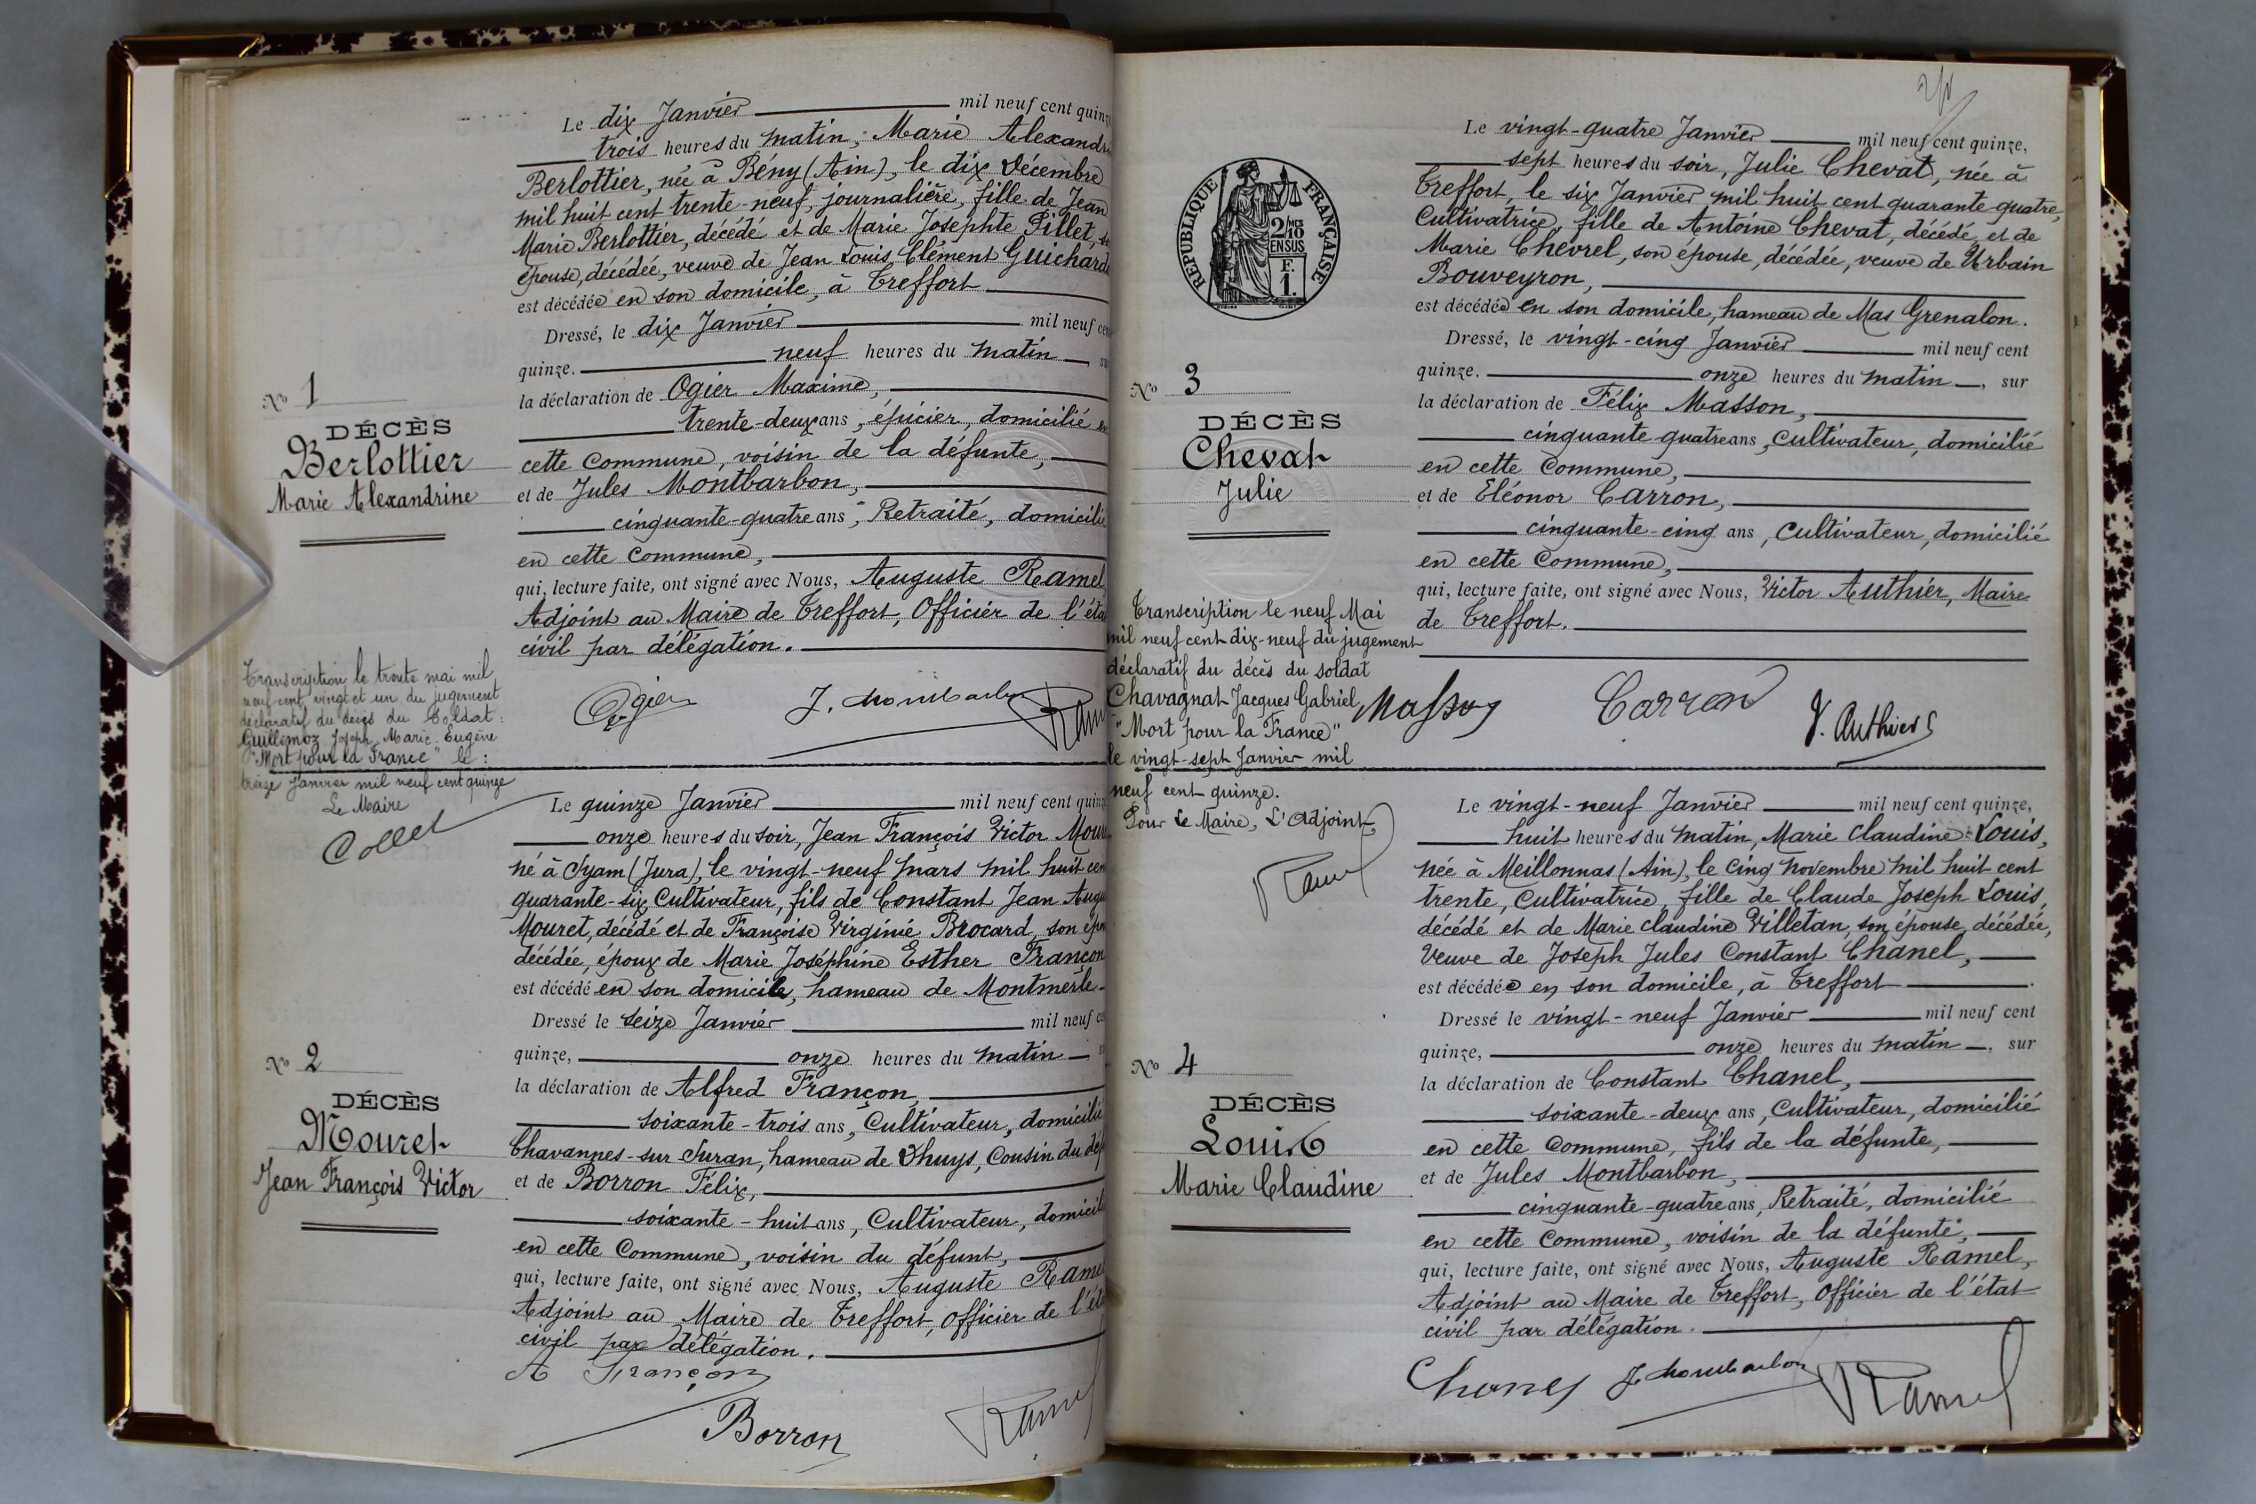 Le dix Janvier mil neuf cent quinze
trois heures du matin, Marie Alexandri
Berlottier, née à Bény (Ain), le dix Décembre
mil huit cent trente-neuf, journalière, fille de Jean
Marie Berlottier, décédé et de Marie Josephte Pillet, s
épouse, décédée, veuve de Jean Louis Clément Guichard
est décédée en son domicile, à Treffort
Dressé, le dix Janvier mil neuf cen
quinze. neuf heures du matin, su
la déclaration de Ogier Maxime,
trente-deux ans, épicier, domicilié en
cette Commune, voisin de la défunte,
et de Jules Montbarbon,
cinquante-quatre ans, Retraité, domicilié
en cette Commune,
qui, lecture faite, ont signé avec Nous, Auguste Ramel
Adjoint au Maire de Treffort, Officier de l'éta
civil par délégation.
Ogier J. Montbarbon Ram
No 1
DÉCÈS
Berlottier
Marie Alexandrine
Transcription le trente mai mil
neuf cent vingt et un du jugement
déclaratif du décès du Soldat:
Guillemoz Joseph Marie Eugène
"Mort pour la France" le:
treize Janvier mil neuf cent quinze
Le Maire
Collet
Le quinze Janvier mil neuf cent quinz
onze heures du soir, Jean François Victor Mour
né à Syam (Jura), le vingt-neuf mars mil huit cen
quarante-six, Cultivateur, fils de Constant Jean Augu
Mouret, décédé et de Françoise Virginie Brocard, son épou
décédée, époux de Marie Joséphine Esther Françon
est décédé en son domicile, hameau de Montmerle
Dressé le seize Janvier mil neuf ce
quinze, onze heures du matin s
la déclaration de Alfred Françon,
soixante-trois ans, Cultivateur, domicilié
Chavannes-sur Suran, hameau de Dhuys, Cousin du déf
et de Borron Félix,
soixante-huit ans, Cultivateur, domicilié
en cette Commune, voisin du défunt,
qui, lecture faite, ont signé avec Nous, Auguste Ramel
Adjoint au Maire de Treffort, Officier de l'éta
civil par délégation.
A Françon
Borron Ramel
No 2
DÉCÈS
Mouret
Jean François Victor
Le vingt-quatre Janvier mil neuf cent quinze,
sept heures du soir, Julie Chevat, née à
Treffort, le six Janvier mil huit cent quarante-quatre,
Cultivatrice, fille de Antoine Chevat, décédé, et de
Marie Chevrel, son épouse, décédée, veuve de Urbain
Bouveyron,
est décédée en son domicile, hameau de Mas Grenalon.
Dressé, le vingt-cinq Janvier mil neuf cent
quinze. onze heures du matin, sur
la déclaration de Félix Masson,
cinquante-quatre ans, Cultivateur, domicilié
en cette Commune,
et de Eléonor Carron,
cinquante-cinq ans, Cultivateur, domicilié
en cette Commune,
qui, lecture faite, ont signé avec Nous, Victor Authier, Maire
de Treffort.
Masson Carron V. Authier
RÉPUBLIQUE FRANÇAISE
2/10 EN SUS
F. 1.
No 3
DÉCÈS
Chevat
Julie
Transcription le neuf Mai
mil neuf cent dix-neuf du jugement
déclaratif du décès du soldat
Chavagnat Jacques Gabriel
"Mort pour la France"
le vingt-sept Janvier mil
neuf cent quinze.
Pour Le Maire, L'Adjoint,
Ramel
Le vingt-neuf Janvier mil neuf cent quinze,
huit heures du matin, Marie Claudine Louis,
née à Meillonnas (Ain), le cinq Novembre mil huit cent
trente, Cultivatrice, fille de Claude Joseph Louis,
décédé et de Marie Claudine Villetan, son épouse, décédée,
Veuve de Joseph Jules Constant Chanel,
est décédée en son domicile, à Treffort
Dressé le vingt-neuf Janvier mil neuf cent
quinze, onze heures du matin, sur
la déclaration de Constant Chanel,
soixante-deux ans, Cultivateur, domicilié
en cette Commune, fils de la défunte,
et de Jules Montbarbon,
cinquante-quatre ans, Retraité, domicilié
en cette Commune, voisin de la défunte,
qui, lecture faite, ont signé avec Nous, Auguste Ramel,
Adjoint au Maire de Treffort, Officier de l'état
civil par délégation.
Chanel J. Montbarbon Ramel
No 4
DÉCÈS
Louis
Marie Claudine